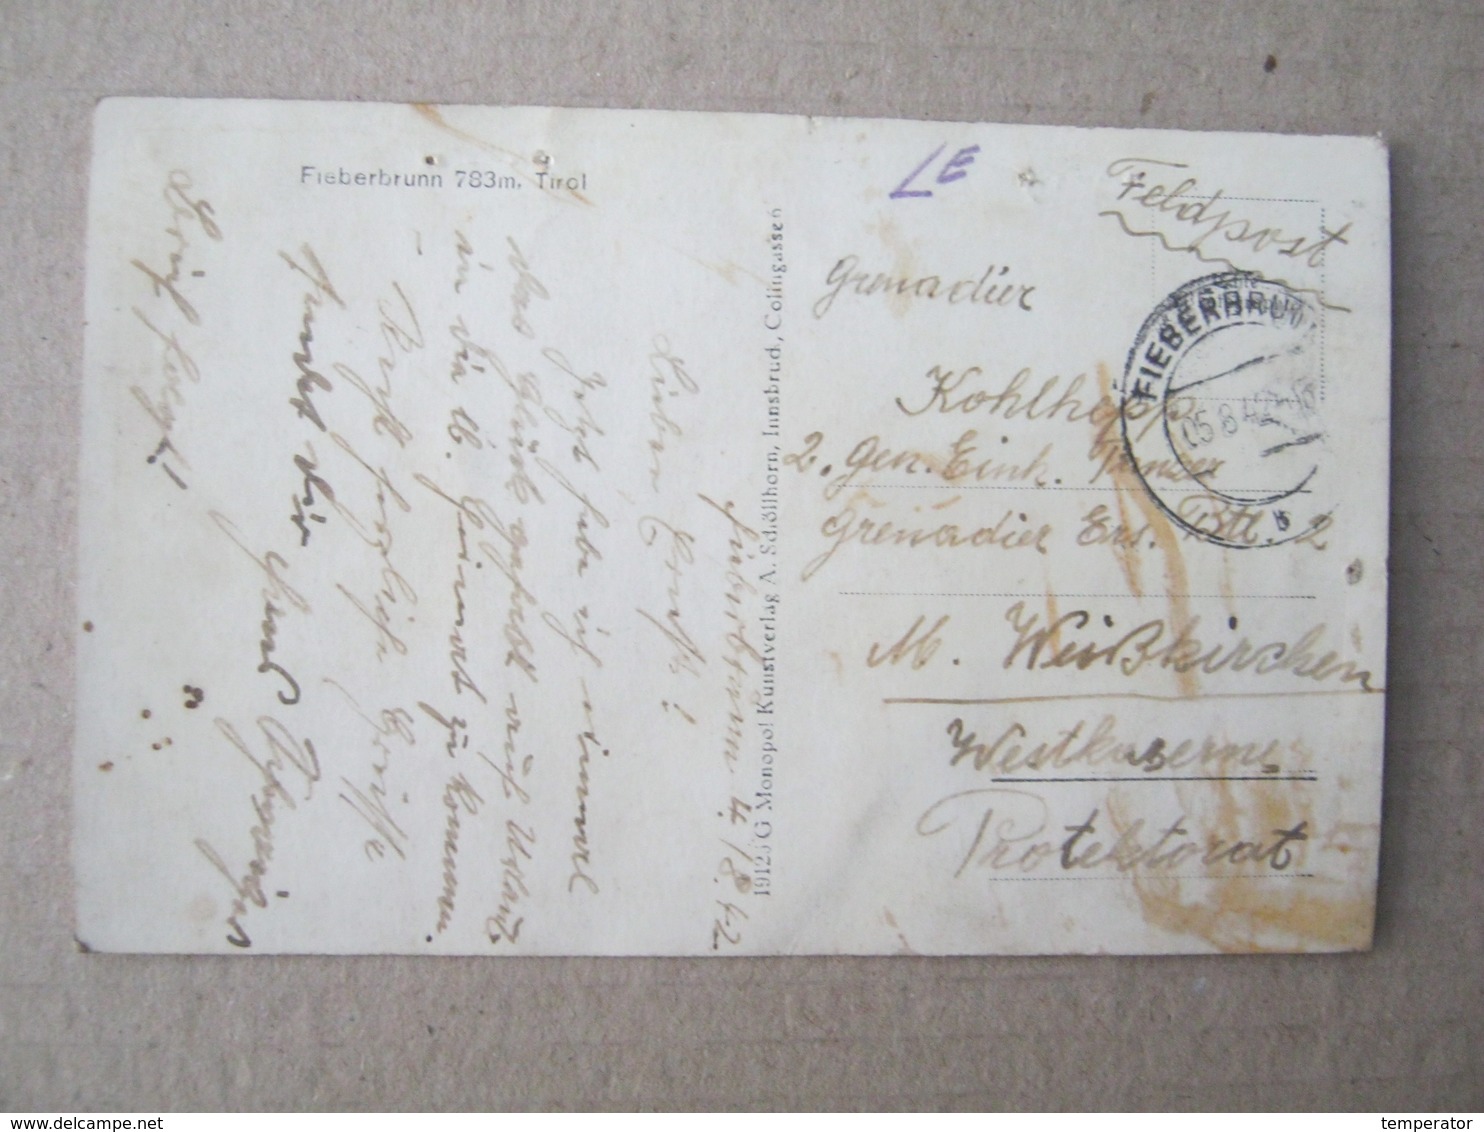 Fieberbrunn 783m, Tirol
Fieberbrunn 4./8.42.
Lieber Ernst!
Jetzt habe ich einmal
das Glück gehabt auf Urlaub
in die lb. Heimat zu kommen.
Recht herzliche Grüße
sendet dir Hans
19125 G Monopol Kunstverlag A. Schöllhorn, Innsbruck, Colingasse 6
LE
Feldpost
Grenadier
Kohlhepp
2. Gen. Einh. Panzer
Grenadier Ers. Btl. 2
M. Weißkirchen
Westkaserne
Protektorat
FIEBERBRUN
05.8.42
b
www.delcampe.net
temperator